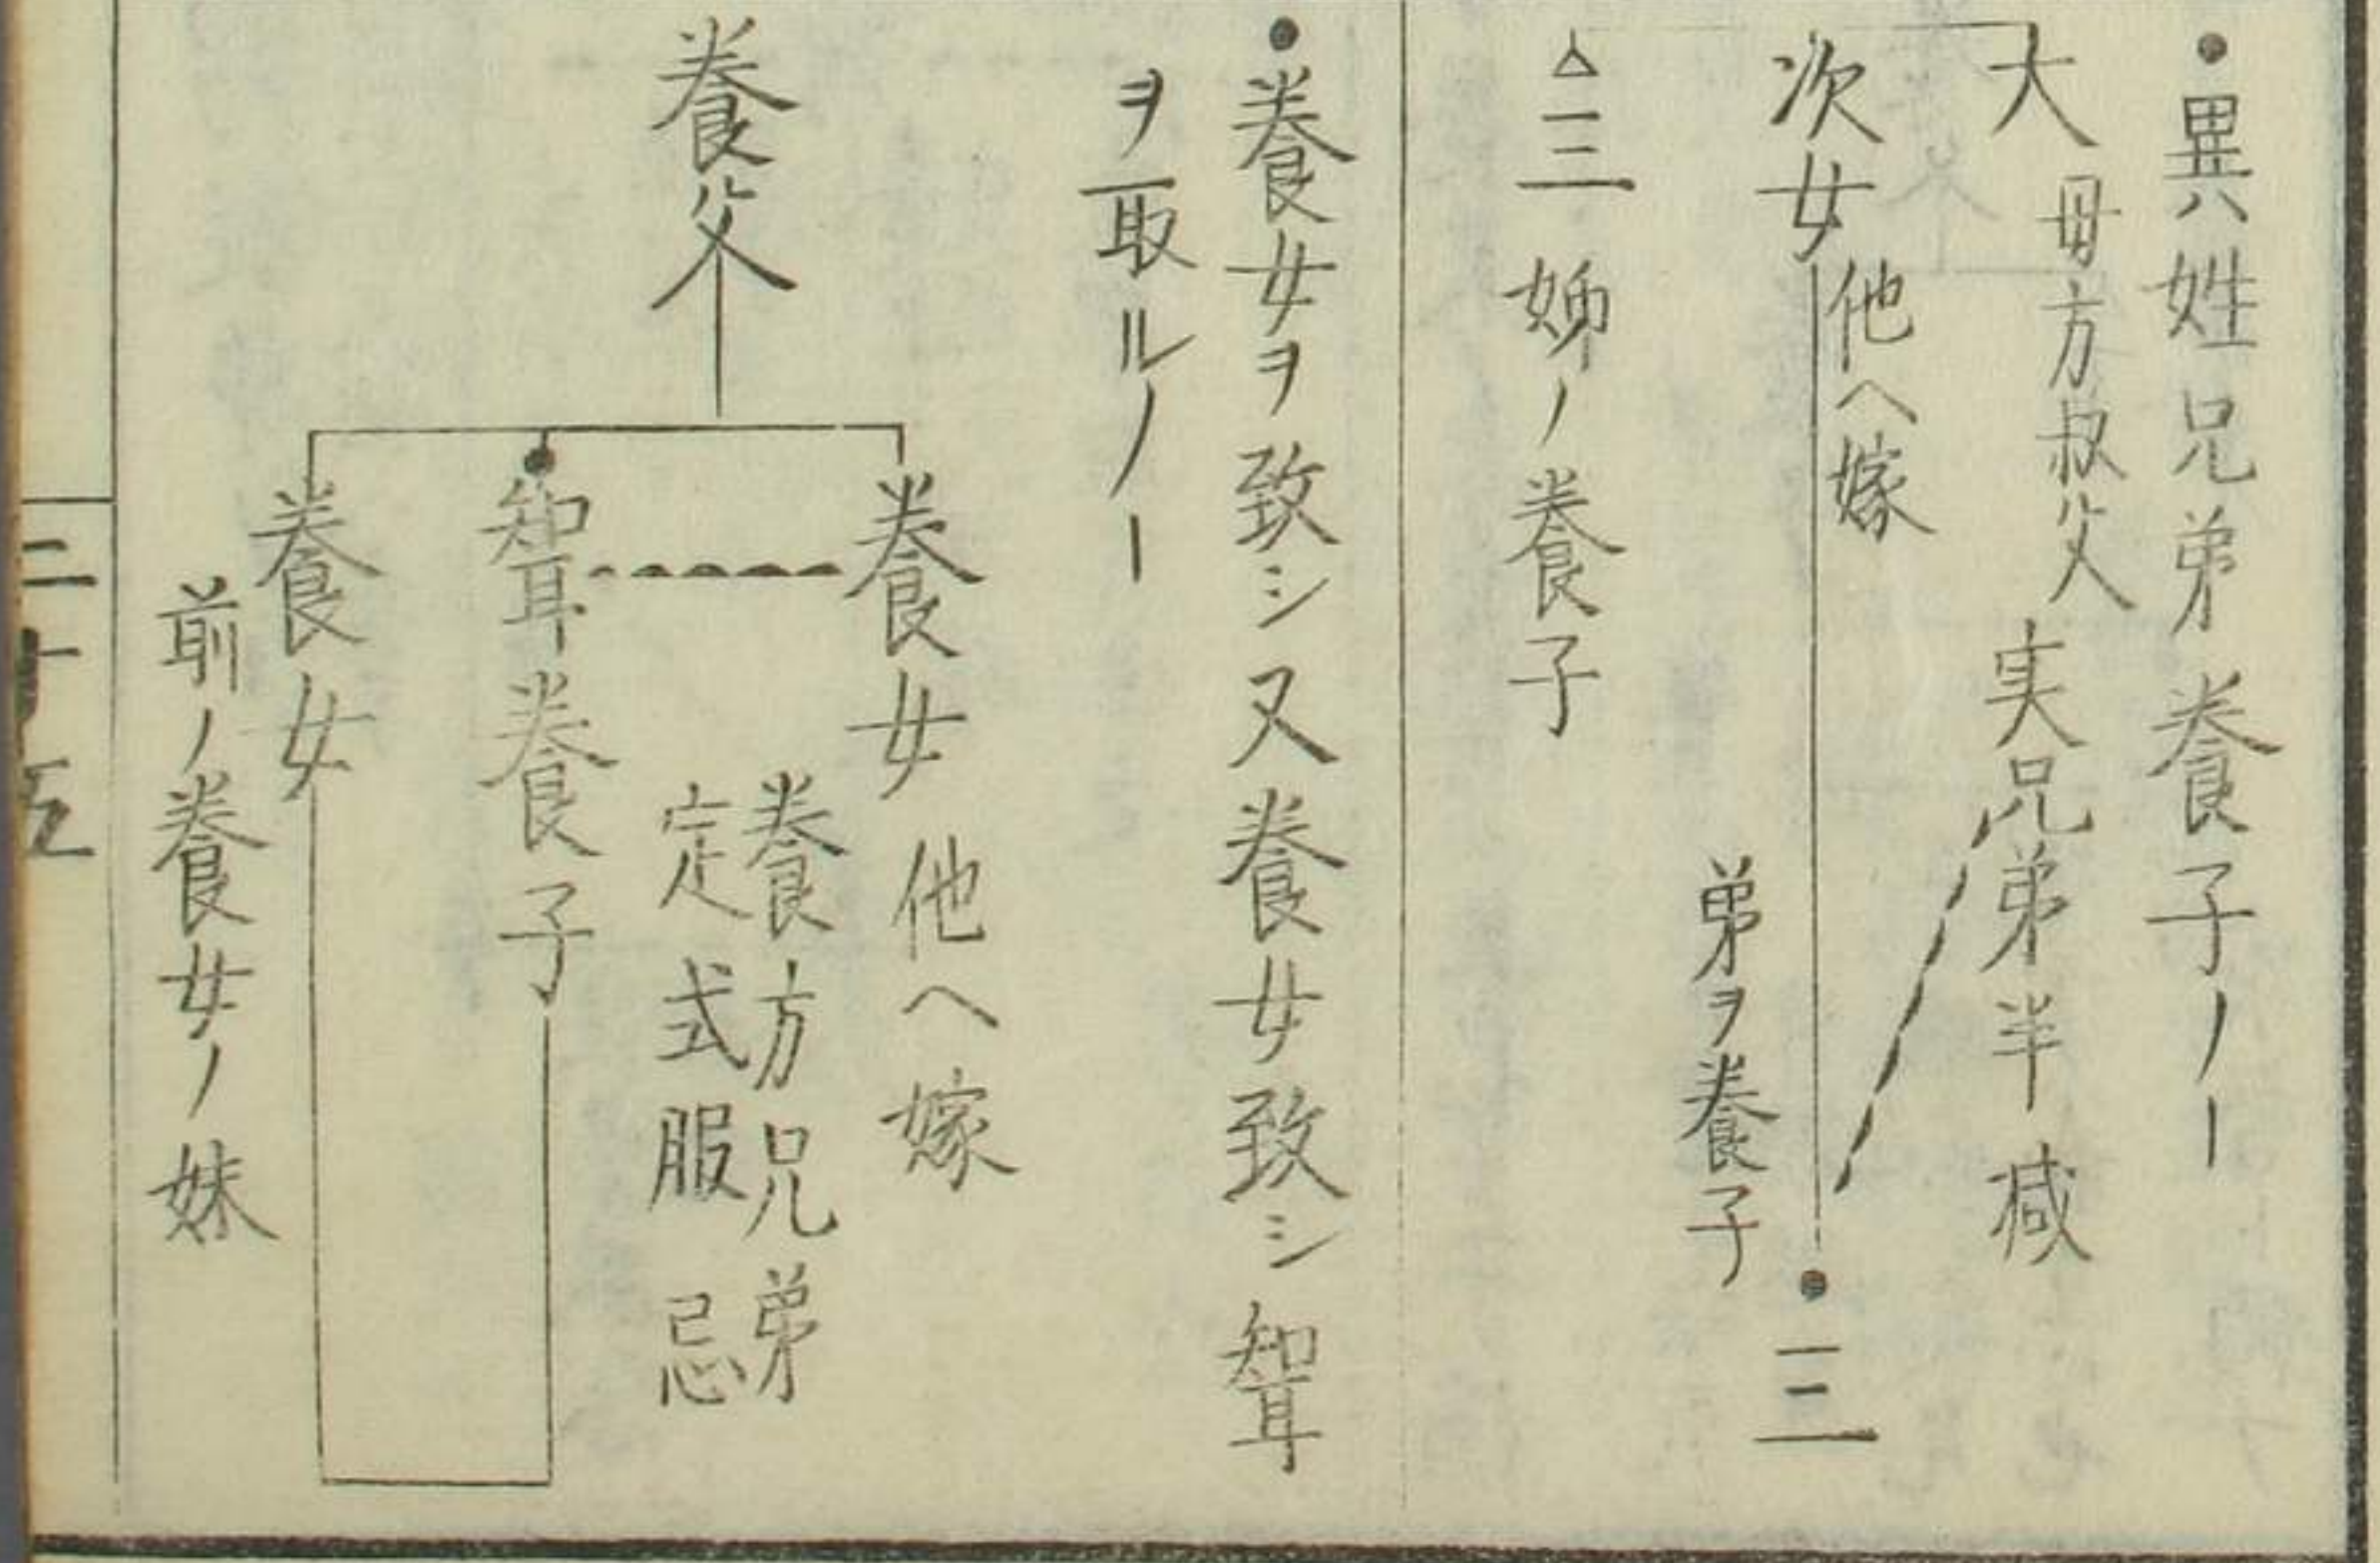 ●異姓兄弟養子ノー
大
母方叔父
実兄弟半減
次女
他ヘ嫁
弟ヲ養子
●三
△三
姉ノ養子
●養女ヲ致シ又養女致シ聟
ヲ取ルノー
養父
養女
他ヘ嫁
養方兄弟
定式服忌
●聟養子
養女
前ノ養女ノ妹
二十五